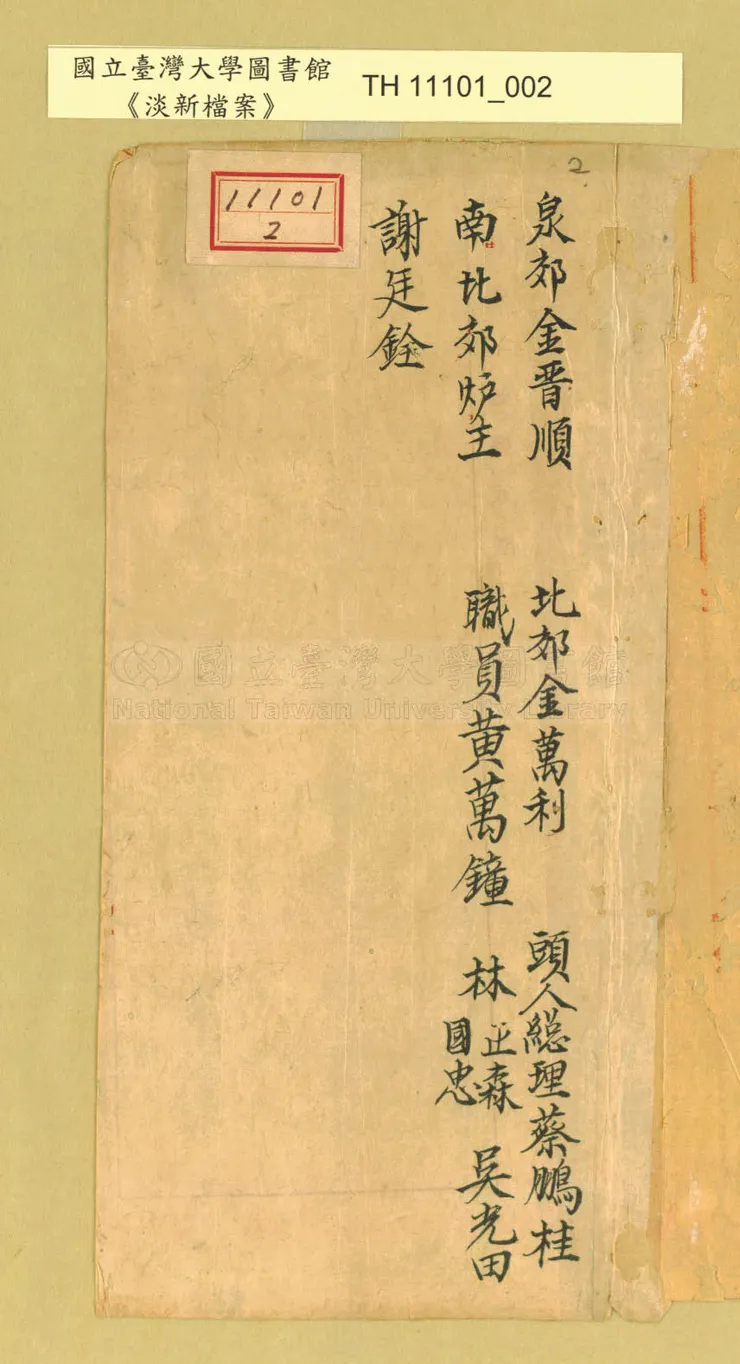 國立臺灣大學圖書館
《淡新檔案》
TH 11101_002
2
11101
2
泉郊金晋順 北郊金萬利 頭人總理蔡鵬桂
南北郊炉主 職員黄萬鐘 林正森國忠 吳光田
謝廷銓
國立臺灣大學圖書館
National Taiwan University Library